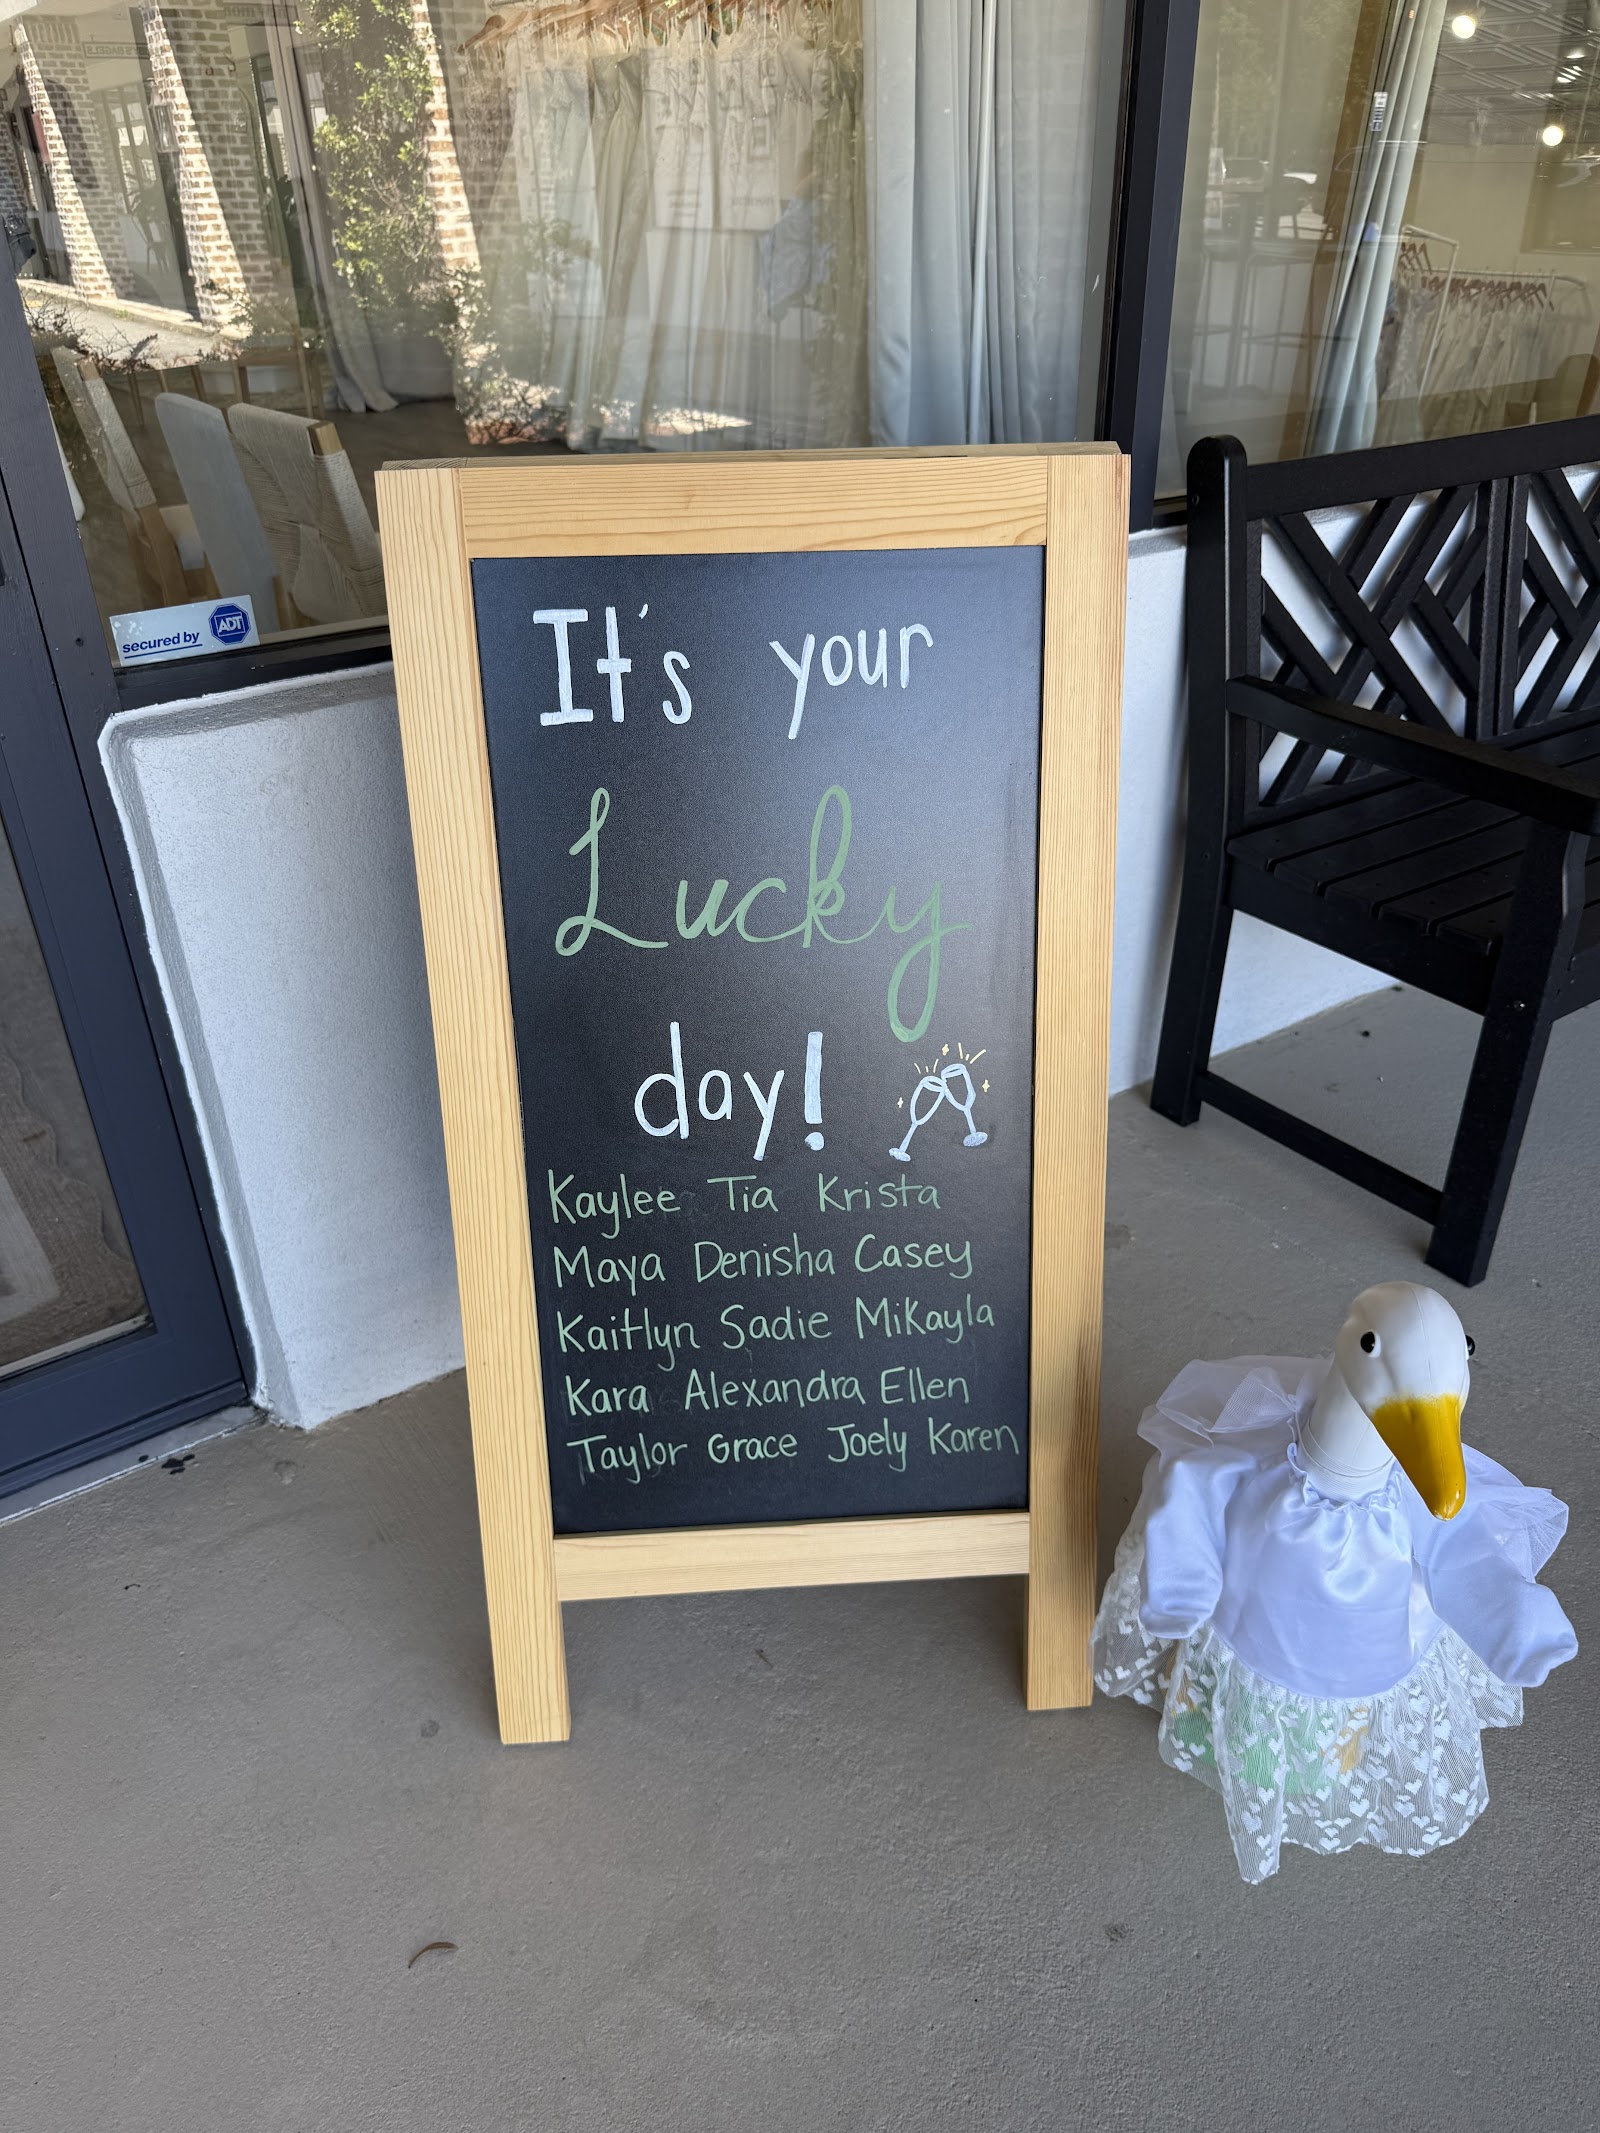 It's your
Lucky
day!
Kaylee Tia Krista
Maya Denisha Casey
Kaitlyn Sadie Mikayla
Kara Alexandra Ellen
Taylor Grace Joely Karen
secured by ADT